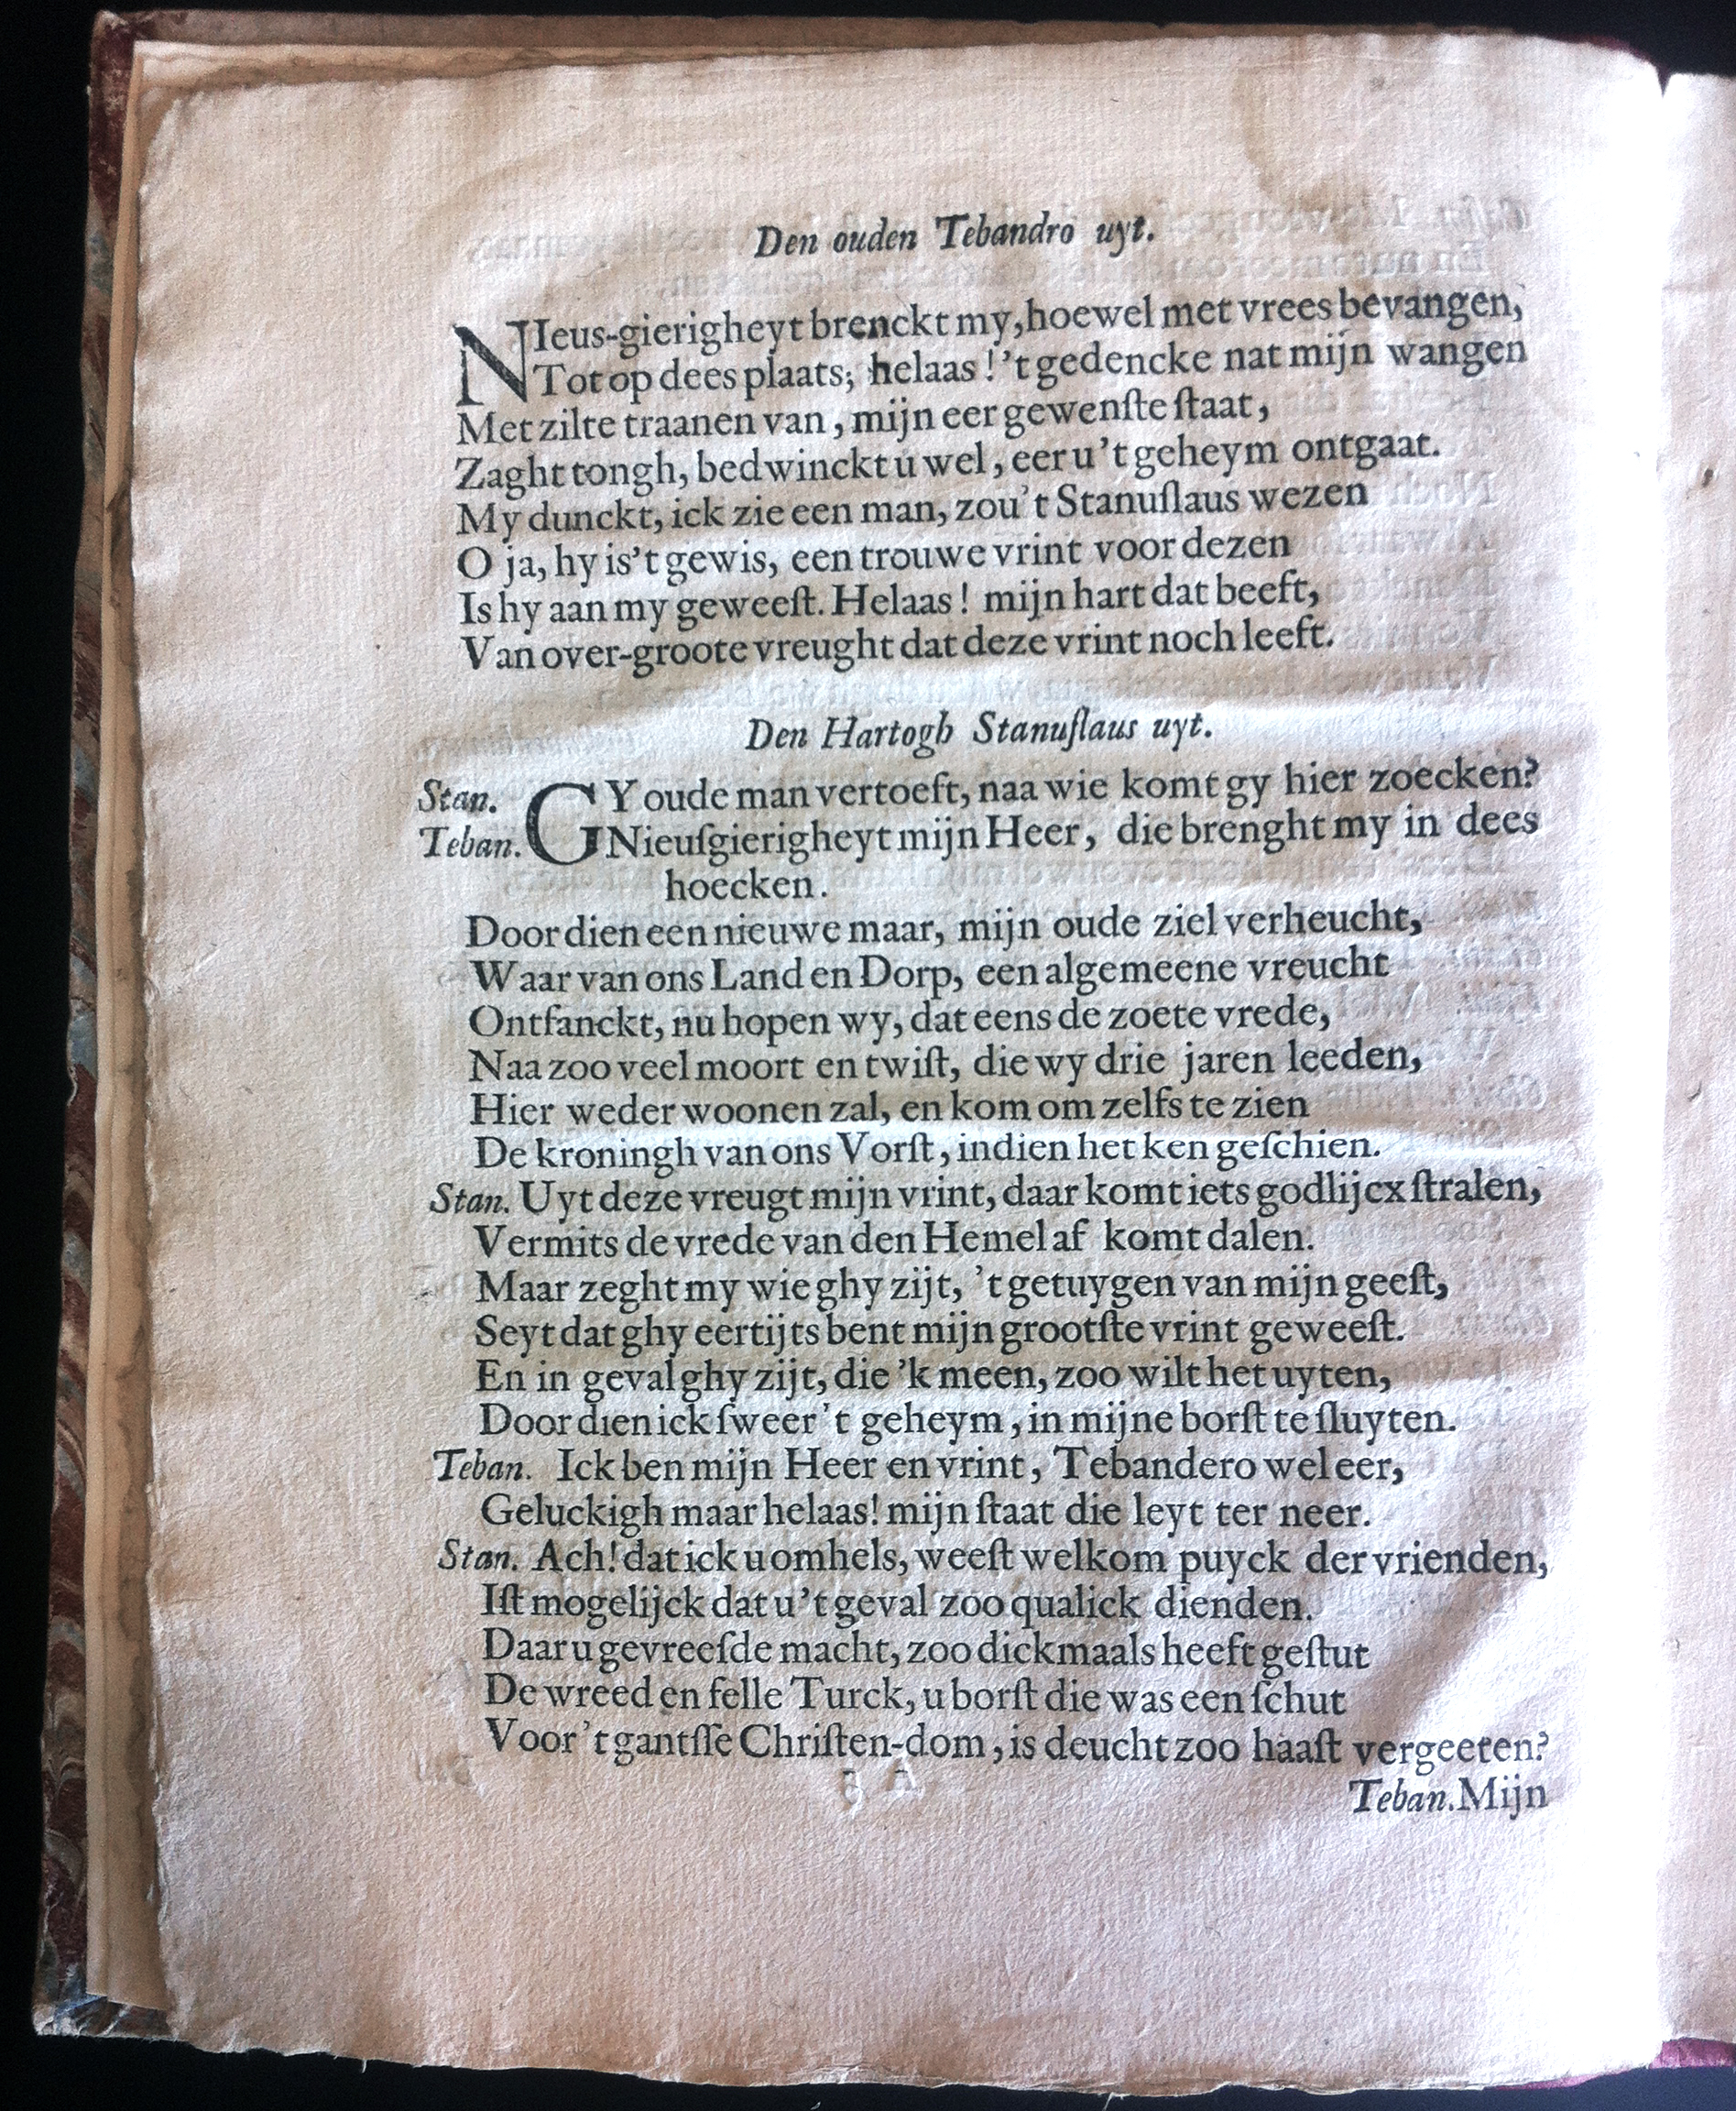 Den ouden Tebandro uyt.
NIeus-gierigheyt brenckt my, hoewel met vrees bevangen,
Tot op dees plaats; helaas! 't gedencke nat mijn wangen
Met zilte traanen van, mijn eer gewenſte ſtaat,
Zaght tongh, bedwinckt u wel, eer u 't geheym ontgaat.
My dunckt, ick zie een man, zou't Stanuſlaus wezen
O ja, hy is't gewis, een trouwe vrint voor dezen
Is hy aan my geweeſt. Helaas! mijn hart dat beeft,
Van over-groote vreught dat deze vrint noch leeft.
Den Hartogh Stanuſlaus uyt.
Stan. GY oude man vertoeft, naa wie komt gy hier zoecken?
Teban. Nieuſgierigheyt mijn Heer, die brenght my in dees
hoecken.
Door dien een nieuwe maar, mijn oude ziel verheucht,
Waar van ons Land en Dorp, een algemeene vreucht
Ontfanckt, nu hopen wy, dat eens de zoete vrede,
Naa zoo veel moort en twiſt, die wy drie jaren leeden,
Hier weder woonen zal, en kom om zelfs te zien
De kroningh van ons Vorſt, indien het ken geſchien.
Stan. Uyt deze vreugt mijn vrint, daar komt iets godlijcx ſtralen,
Vermits de vrede van den Hemel af komt dalen.
Maar zeght my wie ghy zijt, 't getuygen van mijn geeſt,
Seyt dat ghy eertijts bent mijn grootſte vrint geweeſt.
En in geval ghy zijt, die 'k meen, zoo wilt het uyten,
Door dien ick ſweer 't geheym, in mijne borſt te ſluyten.
Teban. Ick ben mijn Heer en vrint, Tebandero wel eer,
Geluckigh maar helaas! mijn ſtaat die leyt ter neer.
Stan. Ach! dat ick u omhels, weeſt welkom puyck der vrienden,
Iſt mogelijck dat u 't geval zoo qualick dienden.
Daar u gevreeſde macht, zoo dickmaals heeft geſtut
De wreed en felle Turck, u borſt die was een ſchut
Voor 't gantſſe Chriſten-dom, is deucht zoo haaſt vergeeten?
Teban. Mijn